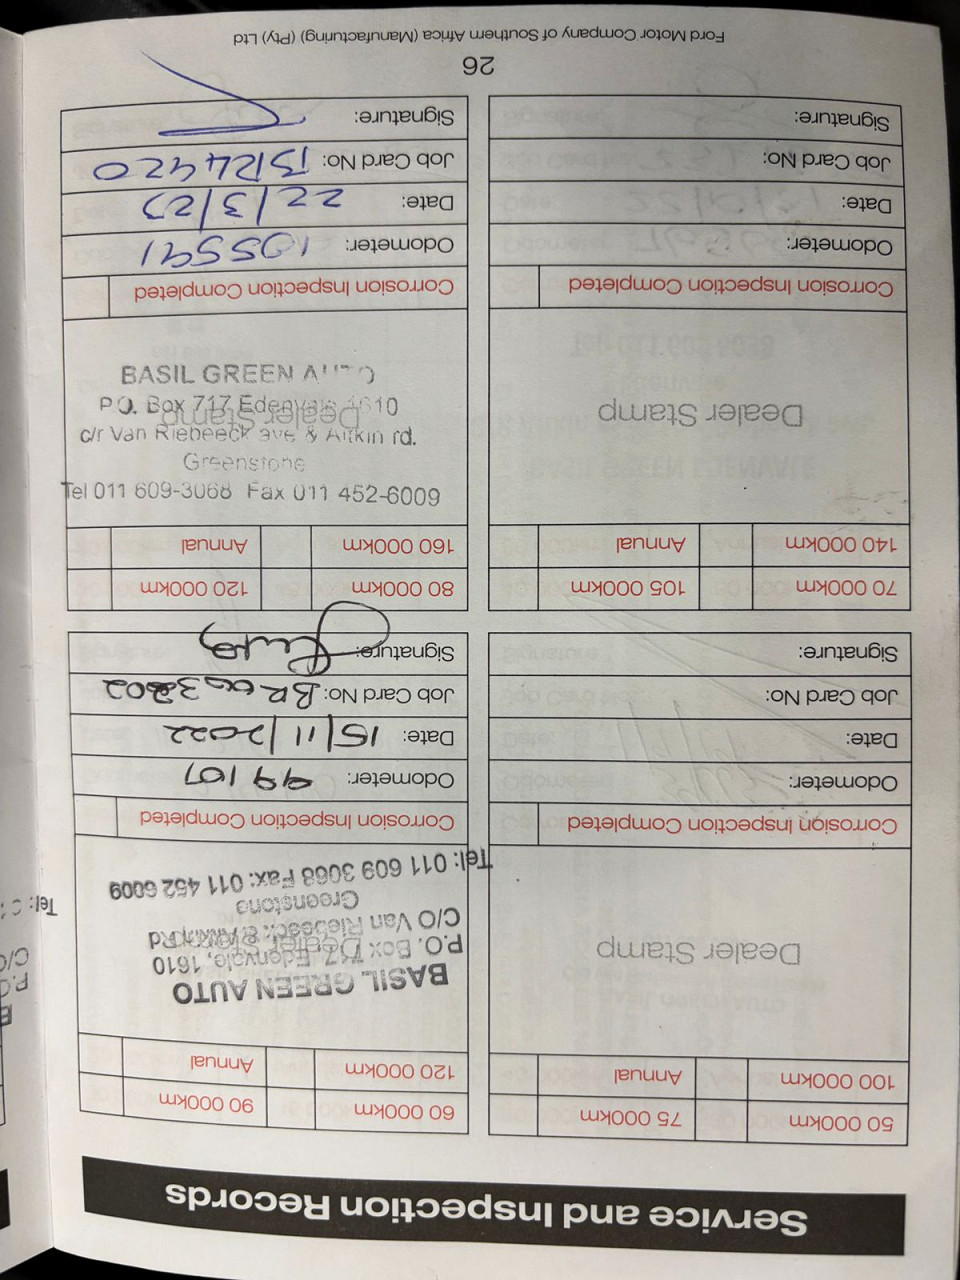 Service and Inspection Records
50 000km 75 000km
100 000km Annual
Dealer Stamp
Corrosion Inspection Completed
Odometer:
Date:
Job Card No:
Signature:
60 000km 90 000km
120 000km Annual
BASIL GREEN AUTO
P.O. Box 717, Edenvale, 1610
Dealer Stamp
C/O Van Riebeeck & Rd
Greenstone
Tel: 011 609 3068 Fax: 011 452 6009
Corrosion Inspection Completed
Odometer: 99107
Date: 15/11/2022
Job Card No:
Signature:
70 000km 105 000km
140 000km Annual
Dealer Stamp
Corrosion Inspection Completed
Odometer:
Date:
Job Card No:
Signature:
80 000km 120 000km
160 000km Annual
Dealer Stamp
BASIL GREEN AUTO
P.O. Box 717 Edenvale 1610
c/r Van Riebeeck ave & Aitkin rd.
Greenstone
Tel 011 609-3068 Fax 011 452-6009
Corrosion Inspection Completed
Odometer: 105591
Date: 22/3/23
Job Card No:
Signature:
26
Ford Motor Company of Southern Africa (Manufacturing) (Pty) Ltd